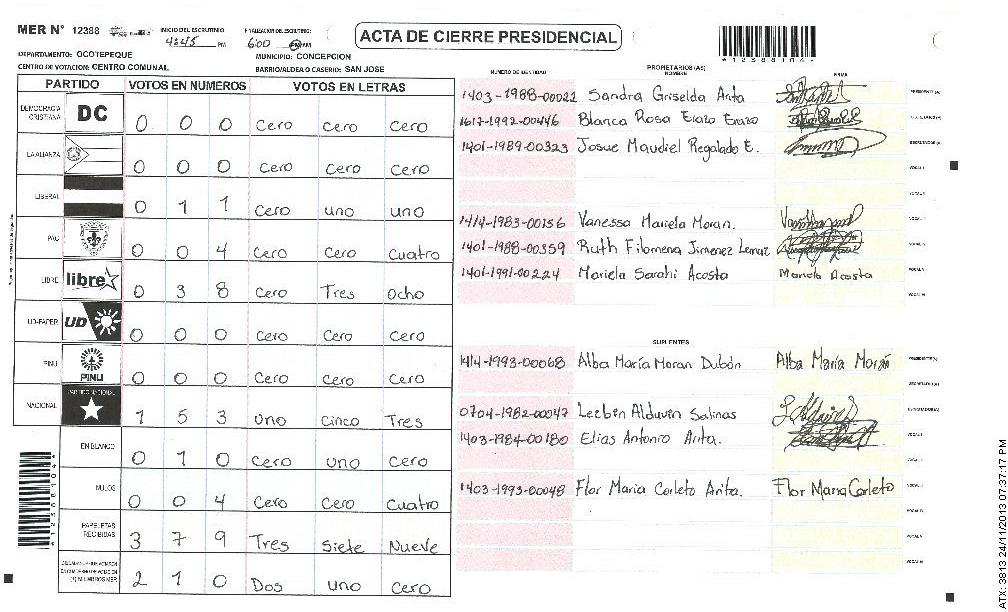 MER N° 12388
INICIO DEL ESCRUTINIO
4:45 PM
FINALIZACION DEL ESCRUTINIO:
6:00 PM
ACTA DE CIERRE PRESIDENCIAL
*12388104*
DEPARTAMENTO: OCOTEPEQUE
MUNICIPIO: CONCEPCION
CENTRO DE VOTACION: CENTRO COMUNAL
BARRIO/ALDEA O CASERIO: SAN JOSE
PARTIDO VOTOS EN NUMEROS VOTOS EN LETRAS
DEMOCRACIA CRISTIANA DC 0 0 0 Cero cero cero
LA ALIANZA 0 0 0 Cero Cero Cero
LIBERAL 0 1 1 Cero uno uno
PAC 0 0 4 Cero Cero Cuatro
LIBRE libre 0 3 8 Cero Tres Ocho
UD-FAPER UD 0 0 0 Cero Cero Cero
PINU PINU 0 0 0 Cero Cero Cero
NACIONAL PARTIDO NACIONAL 1 5 3 Uno Cinco Tres
EN BLANCO 0 1 0 Cero uno Cero
NULOS 0 0 4 Cero Cero Cuatro
PAPELETAS RECIBIDAS 3 7 9 Tres Siete Nueve
2 1 0 Dos uno cero
NUMERO DE IDENTIDAD
PROPIETARIOS (AS)
NOMBRE
FIRMA
1403-1988-00022 Sandra Griselda Arita PRESIDENTE (A)
1617-1992-00446 Blanca Rosa Erazo Erazo SECRETARIO (A)
1401-1989-00323 Josue Maudiel Regalado E. ESCRUTADOR (A)
VOCAL I
VOCAL II
1414-1983-00156 Vanessa Mariela Moran.
1401-1988-00359 Ruth Filomena Jimenez
1401-1991-00224 Mariela Sarahi Acosta Mariela Acosta
SUPLENTES
1414-1993-00068 Alba María Moran Dubón Alba María Morán PRESIDENTE (A)
SECRETARIO (A)
0704-1982-00047 Salinas ESCRUTADOR (A)
1403-1984-00180 Elias Antonio Arita.
1403-1993-00048 Flor Maria Corleto Arita. Flor Maria Corleto
*12388104*
ATX: 3813 24/11/2013 07:37:17 PM